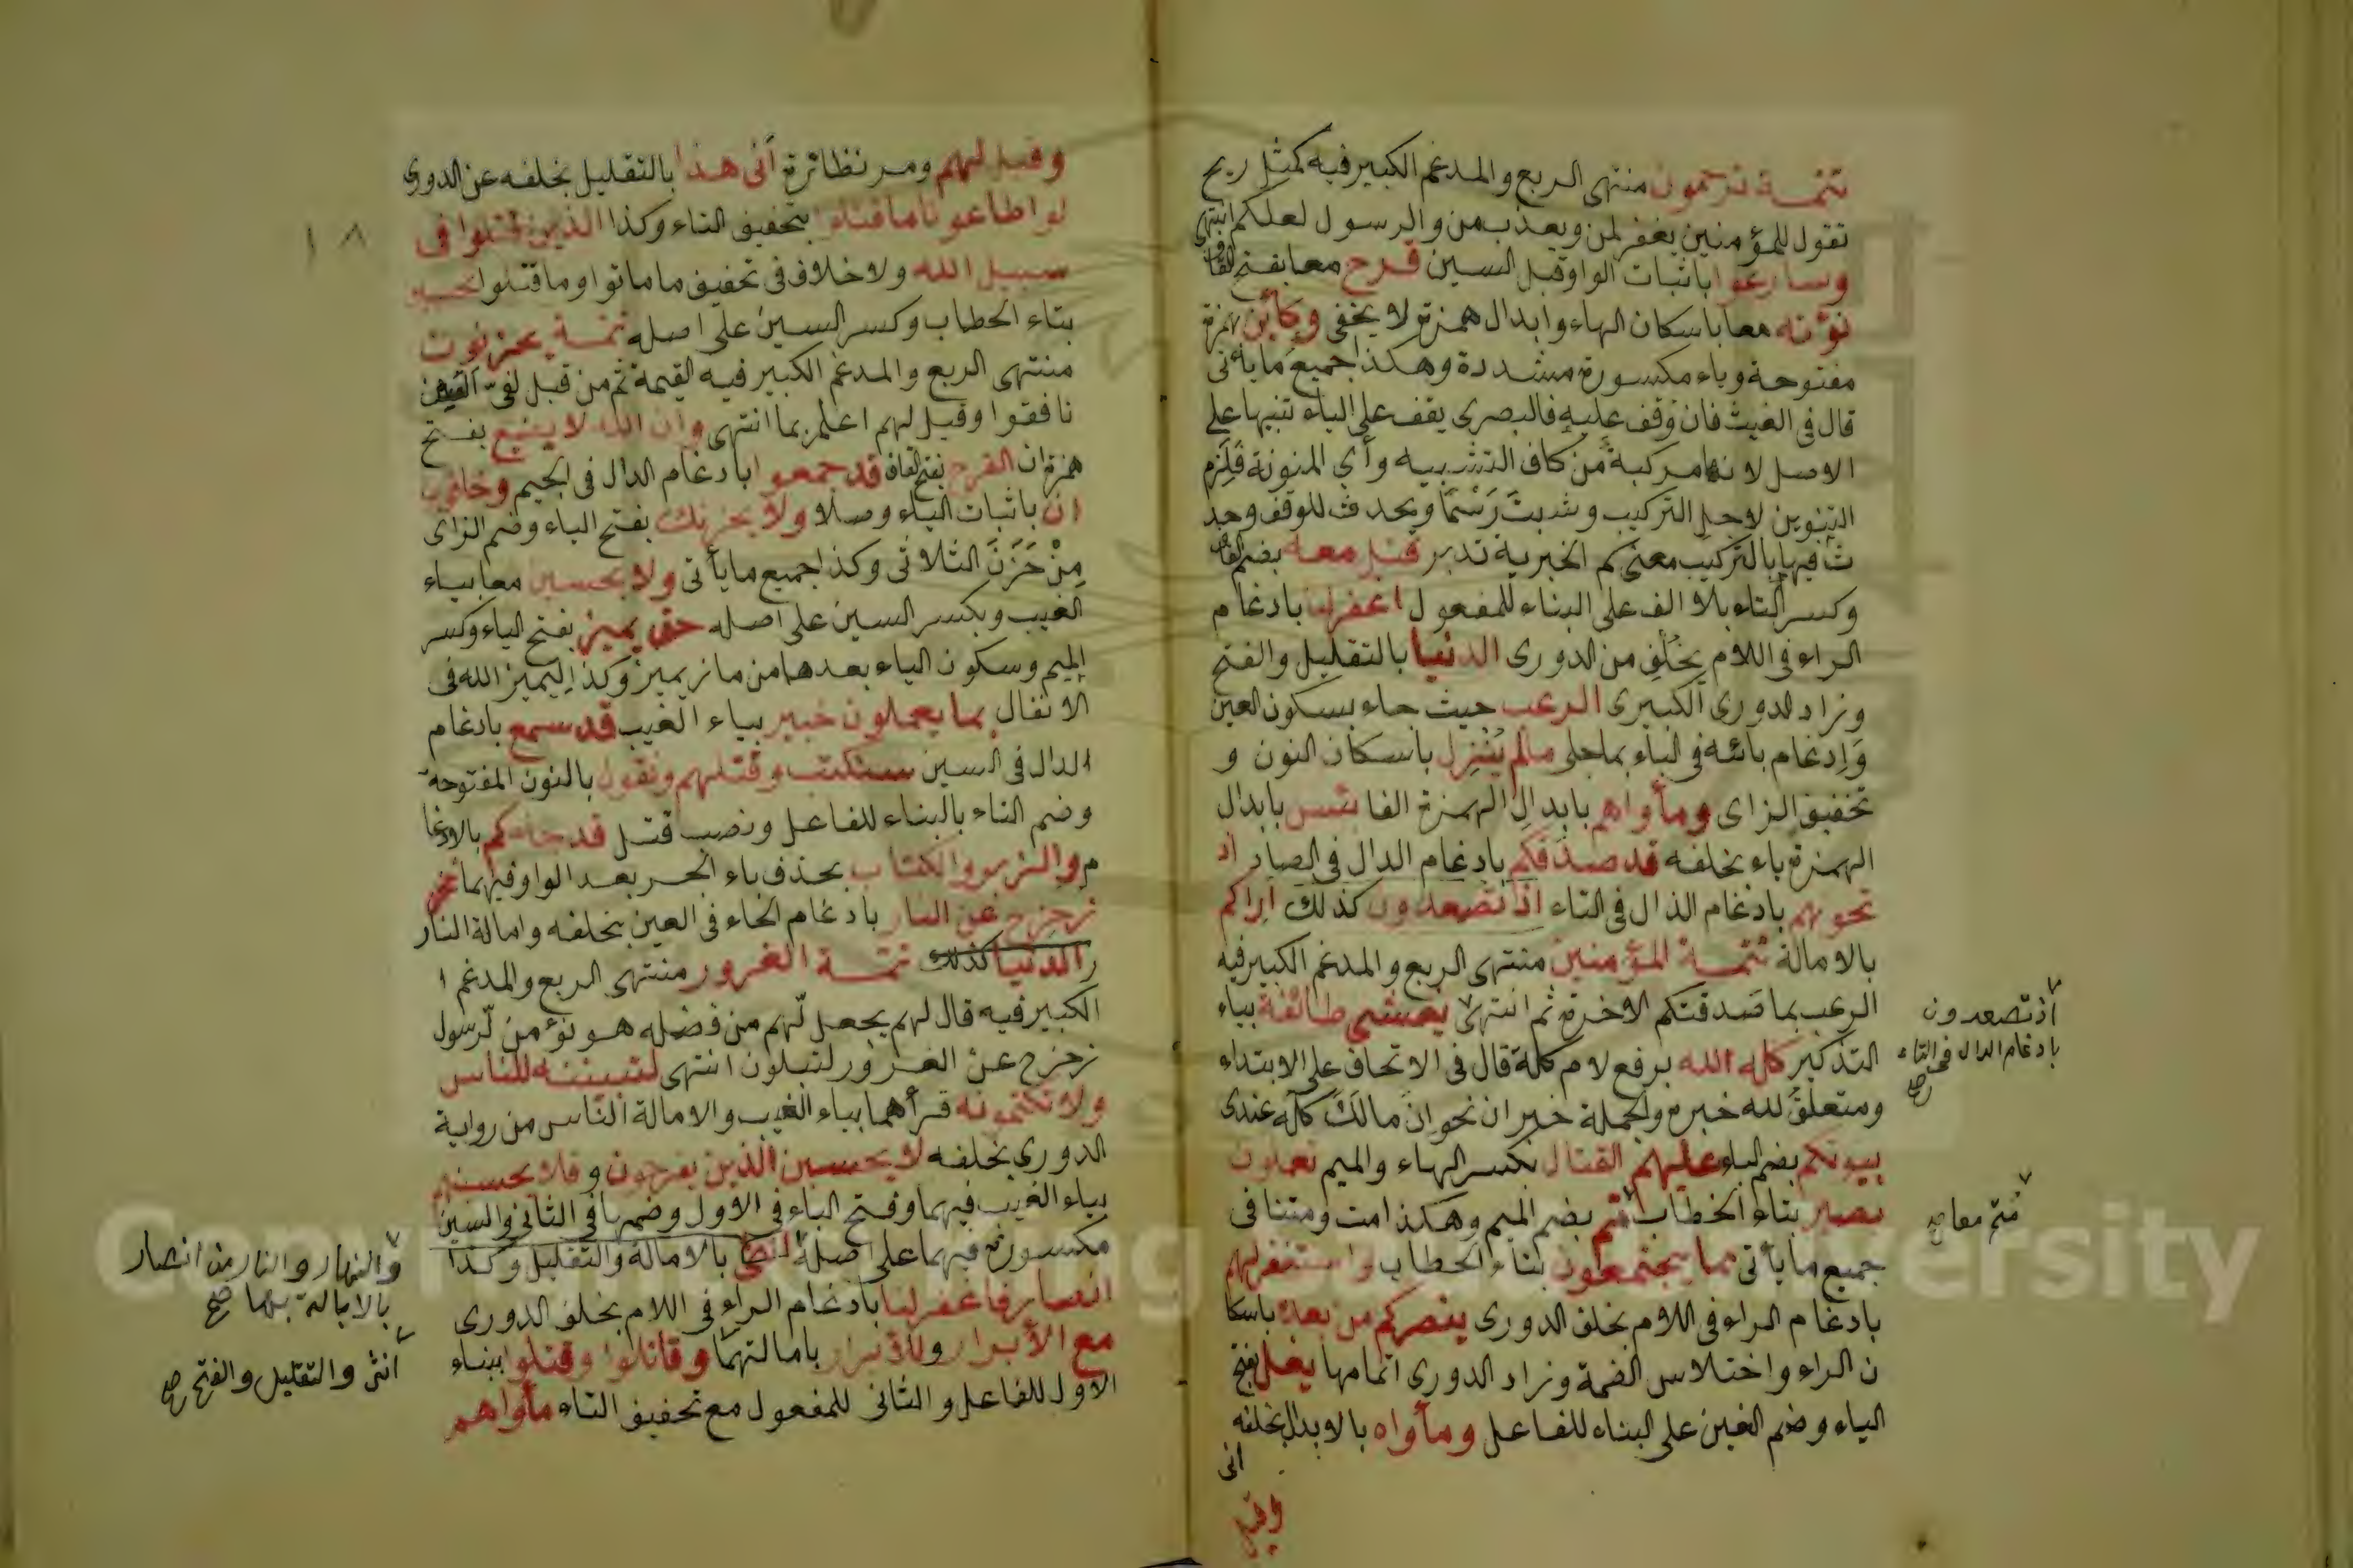 تتمـــة ترحمون منتهى الربع والمدغم الكبير فيه كمثل ريح
تقول للمؤمنين يغفر لمن ويعذب من والرسول لعلكم انتهى
وسارعوا باثبات الواو قبل السين قرح معا بفتح القاف
نؤته معا باسكان الهاء وابدال همزته لا يخفى وكأين بهمزة
مفتوحة وياء مكسورة مشددة وهكذا جميع ما يأتى
قال فى الغيث فان وقف عليه فالبصرى يقف على الياء تنبيها على
الاصل لانها مركبة من كاف التشبيه وأي المنونة فلزم
التنوين لاجل التركيب وثبت رسما ويحذف للوقف وحد
ث فيها بالتركيب معنى كم الخبرية تدبر قتل معه بضم القاف
وكسر التاء بلا الف على البناء للمفعول اغفر لنا بادغام
الراء فى اللام بخلف من الدورى الدنيا بالتقليل والفتح
وزاد الدورى الكبرى الرعب حيث جاء بسكون العين
وادغام بائه فى الباء بما جلى مالم ينزل باسكان النون و
تخفيف الزاى ومأواهم بابدال الهمزة الفا بئس بابدال
الهمزة ياء بخلفه قد صدقكم بادغام الدال فى الصاد اذ
تحسونهم بادغام الذال فى التاء اذ تصعدون كذلك اراكم
بالامالة تتمـــة المؤمنين منتهى الربع والمدغم الكبير فيه
الرعب بما صدقتكم الاخرة ثم انتهى يغشى طائفة بياء
التذكير كله الله برفع لام كلة قال فى الاتحاف على الابتداء
ومتعلق لله خبره والجملة خبر ان نحو ان مالك كله عندى
بيوتكم بضم الباء عليهم القتال بكسر الهاء والميم تعملون
بصير بتاء الخطاب متم بضم الميم وهكذا مت ومتنا فى
جميع ما يأتى مما يجتمعون بتاء الخطاب واستغفر لهم
بادغام الراء فى اللام بخلف الدورى ينصركم من بعده باسكا
ن الراء واختلاس الضمة وزاد الدورى اتمامها يغل بفتح
الياء وضم الغين على البناء للفاعل ومأواه بالابدال بخلفه
انى
وقيل
اذ تصعدون
بادغام الذال فى التاء
صح
متم معا صح
وقيل لهم ومر نظائره أنى هذا بالتقليل بخلفه عن الدورى
لو اطاعونا ما قتلوا بتخفيف التاء وكذا الذين قتلوا فى
سبيل الله ولا خلاف فى تخفيف ما ماتوا وما قتلوا تحسبن
بتاء الخطاب وكسر السين على اصله تتمـــة يحزنون
منتهى الربع والمدغم الكبير فيه القيمة ثم من قبل لفى
نافقوا وقيل لهم اعلم بما انتهى وان الله لا يضيع بفتح
همزة ان القرح بفتح القاف قد جمعوا بادغام الدال فى الجيم وخافو
ن باثبات الياء وصلا ولا يحزنك بفتح الياء وضم الزاى
من حزن الثلاثى وكذا جميع ما يأتى ولا يحسبن معا بياء
الغيب وبكسر السين على اصله حتى يميز بفتح الياء وكسر
الميم وسكون الياء بعدها من ماز يميز وكذا ليميز الله فى
الانفال بما يعملون خبير بياء الغيب قد سمع بادغام
الدال فى السين سنكتب وقتلهم ونقول بالنون المفتوحة
وضم التاء بالبناء للفاعل ونصب قتل قد جاءكم بالادغا
م والزبر والكتاب بحذف باء الجر بعد الواو فيهما فمن
زحزح عن النار بادغام الحاء فى العين بخلفه وامالة النار
ر الدنيا كذلك تتمـــة الغرور منتهى الربع والمدغم ا
الكبير فيه قال لهم يجعل لهم من فضله هو نؤمن لرسول
زحزح عن الغرور لتبلون انتهى لتبيننه للناس
ولا تكتمونه قرأهما بياء الغيب والامالة الناس من رواية
الدورى بخلفه لا يحسبن الذين يفرحون وفلا يحسبنهم
بياء الغيب فيهما وفتح الباء فى الاول وضمها فى الثانى والسين
مكسورة فيهما على اصله بالامالة والتقليل وكذا
انصار فاغفر لنا بادغام الراء فى اللام بخلف الدورى
مع الأبرار وللأبرار بامالتهما وقاتلوا وقتلوا ببناء
الاول للفاعل والثانى للمفعول مع تخفيف التاء مأواهم
١٨
والنهار والنار من انصار
بالامالة بها صح
انثى والتقليل والفتح صح